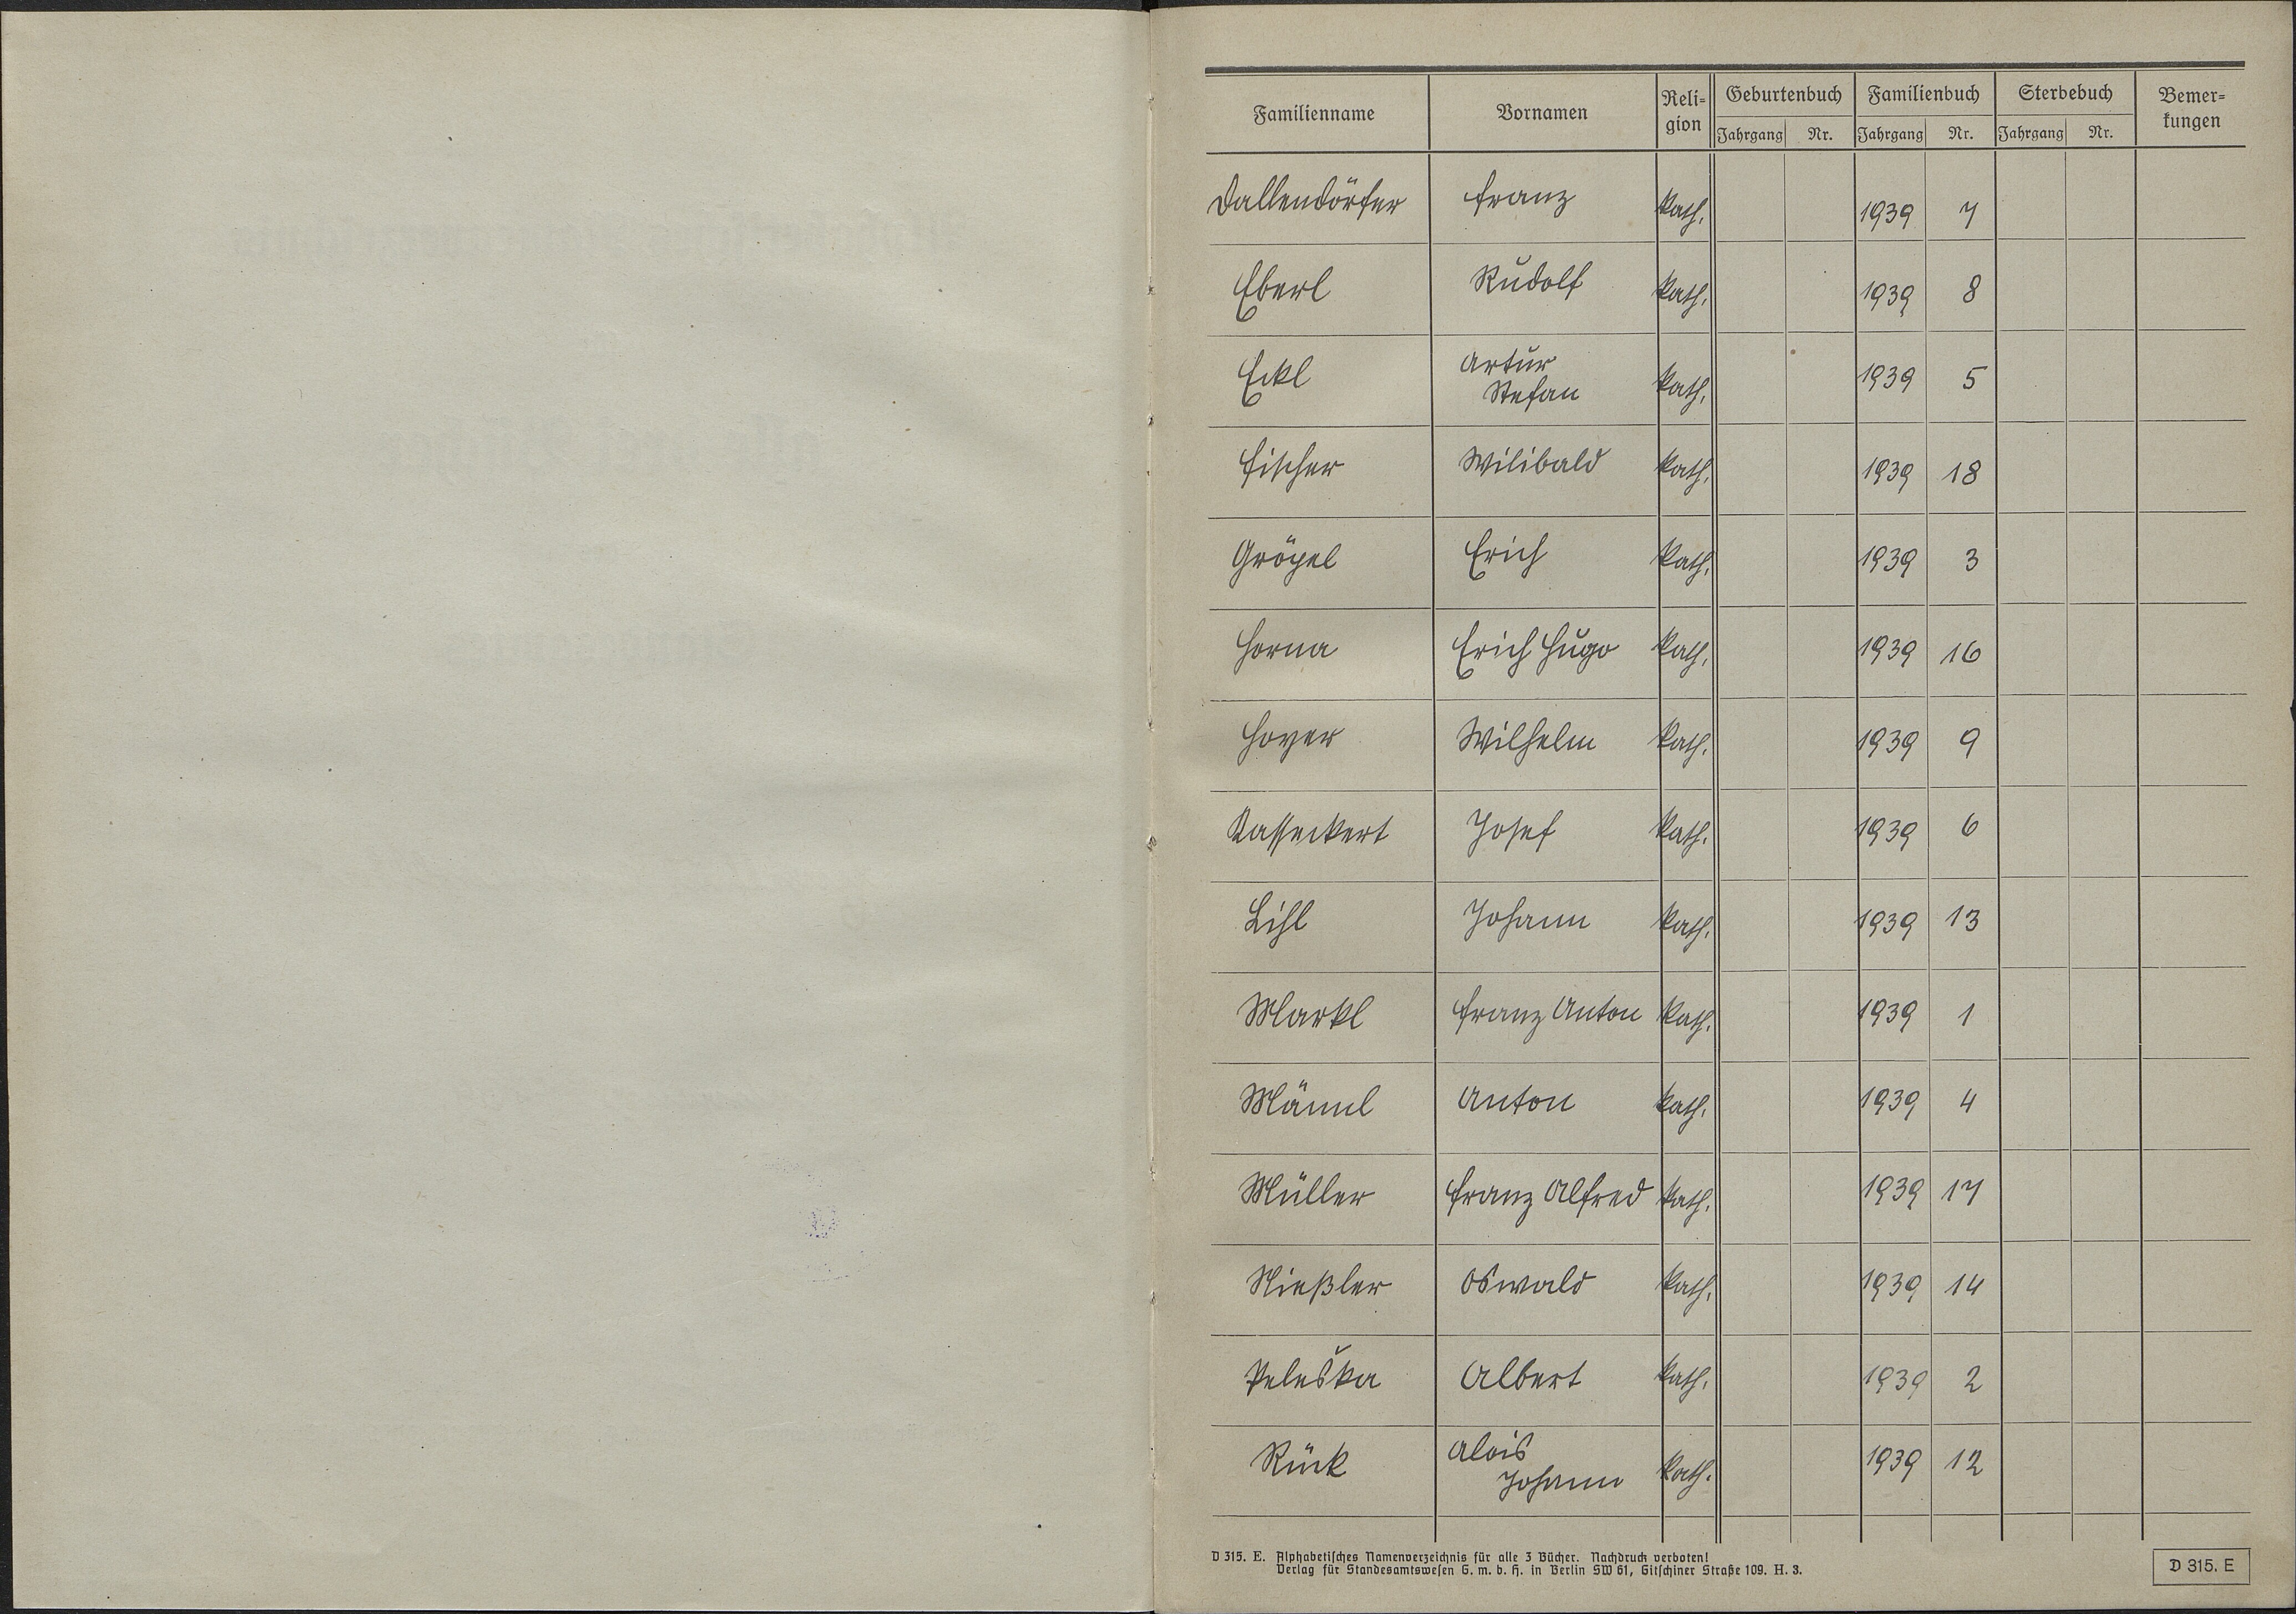 Familienname Vornamen Reli- Geburtenbuch Familienbuch Sterbebuch Bemer-
gion Jahrgang Nr. Jahrgang Nr. Jahrgang Nr. kungen
Dallendörfer Franz Kath. 1939 7
Eberl Rudolf Kath. 1939 8
Eckl Artur
Stefan Kath. 1939 5
Fischer Wilibald Kath. 1939 18
Gröpel Erich Kath. 1939 3
Horna Erich Hugo Kath. 1939 16
Hoyer Wilhelm Kath. 1939 9
Kasseckert Josef Kath. 1939 6
Lihl Johann Kath. 1939 13
Markl Franz Anton Kath. 1939 1
Männl Anton Kath. 1939 4
Müller Franz Alfred Kath. 1939 17
Nießler Oswald Kath. 1939 14
Peleška Albert Kath. 1939 2
Rück Alois
Johann Kath. 1939 12
D 315. E. Alphabetisches Namenverzeichnis für alle 3 Bücher. Nachdruck verboten!
Verlag für Standesamtswesen G. m. b. H. in Berlin SW 61, Gitschiner Straße 109. H. 3.
D 315. E